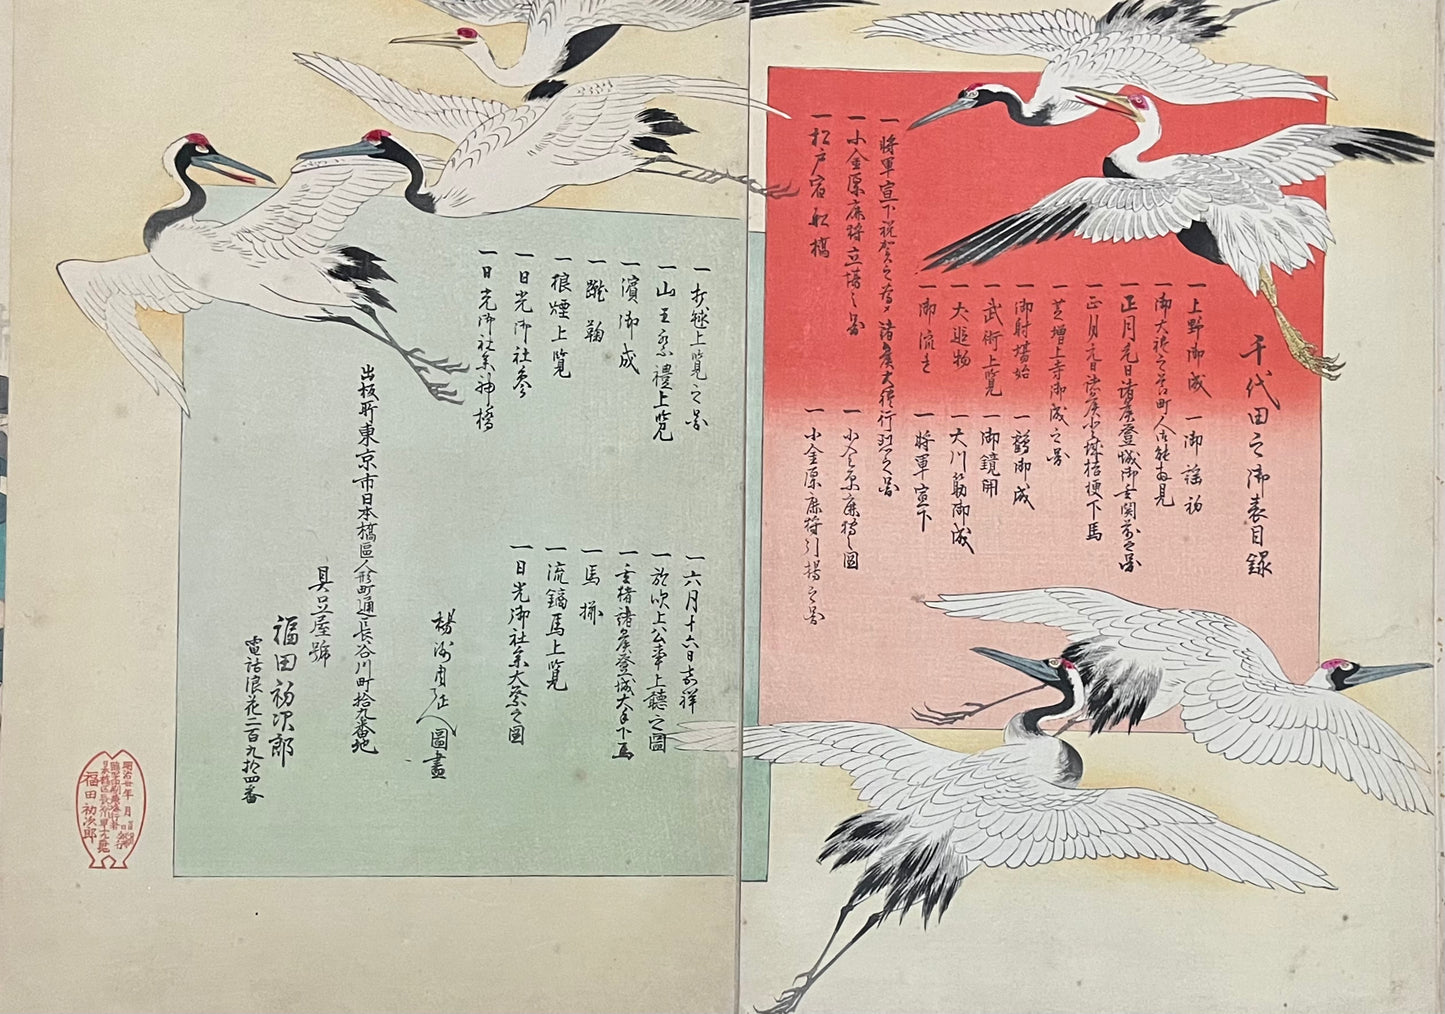 千代田之御表目録
一上野御成
一御謡初
一御大礼之節町人御能拝見
一正月元日諸侯登城御玄関前之図
一正月元日諸侯大城桔梗下馬
一芝増上寺御成之図
一御射場始
一鶴御成
一武術上覧
一御鏡開
一犬追物
一大川筋御成
一御流れ
一将軍宣下
一將軍宣下祝賀之為メ諸侯大禮行列之図
一小金原鹿狩立場之図
一小金原鹿狩之図
一松戸宿船橋
一小金原鹿狩引揚之図
一打毬上覧之図
一六月十六日嘉祥
一山王祭禮上覧
一於吹上公事上聽之図
一濱御成
一玄猪諸侯登城大手下馬
一蹴鞠
一馬揃
一狼煙上覧
一流鏑馬上覧
一日光御社参
一日光御社参大祭之図
一日光御社参神橋
楊洲周延圖畫
出板所東京市日本橋區人形町通長谷川町拾九番地
具足屋號
福田初次郎
電話浪花二百九拾四番
福田初次郎